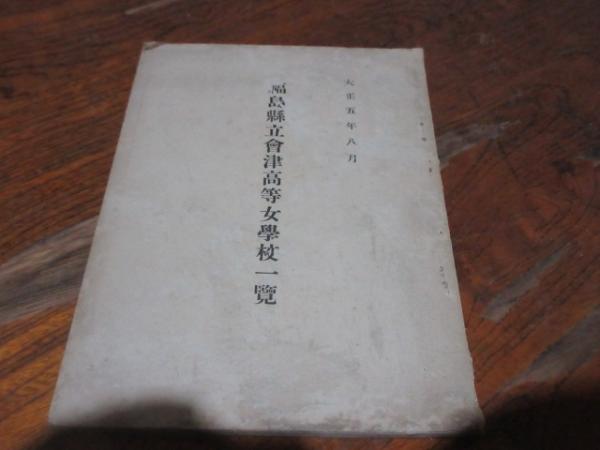 大正五年八月
福島縣立會津高等女學校一覽